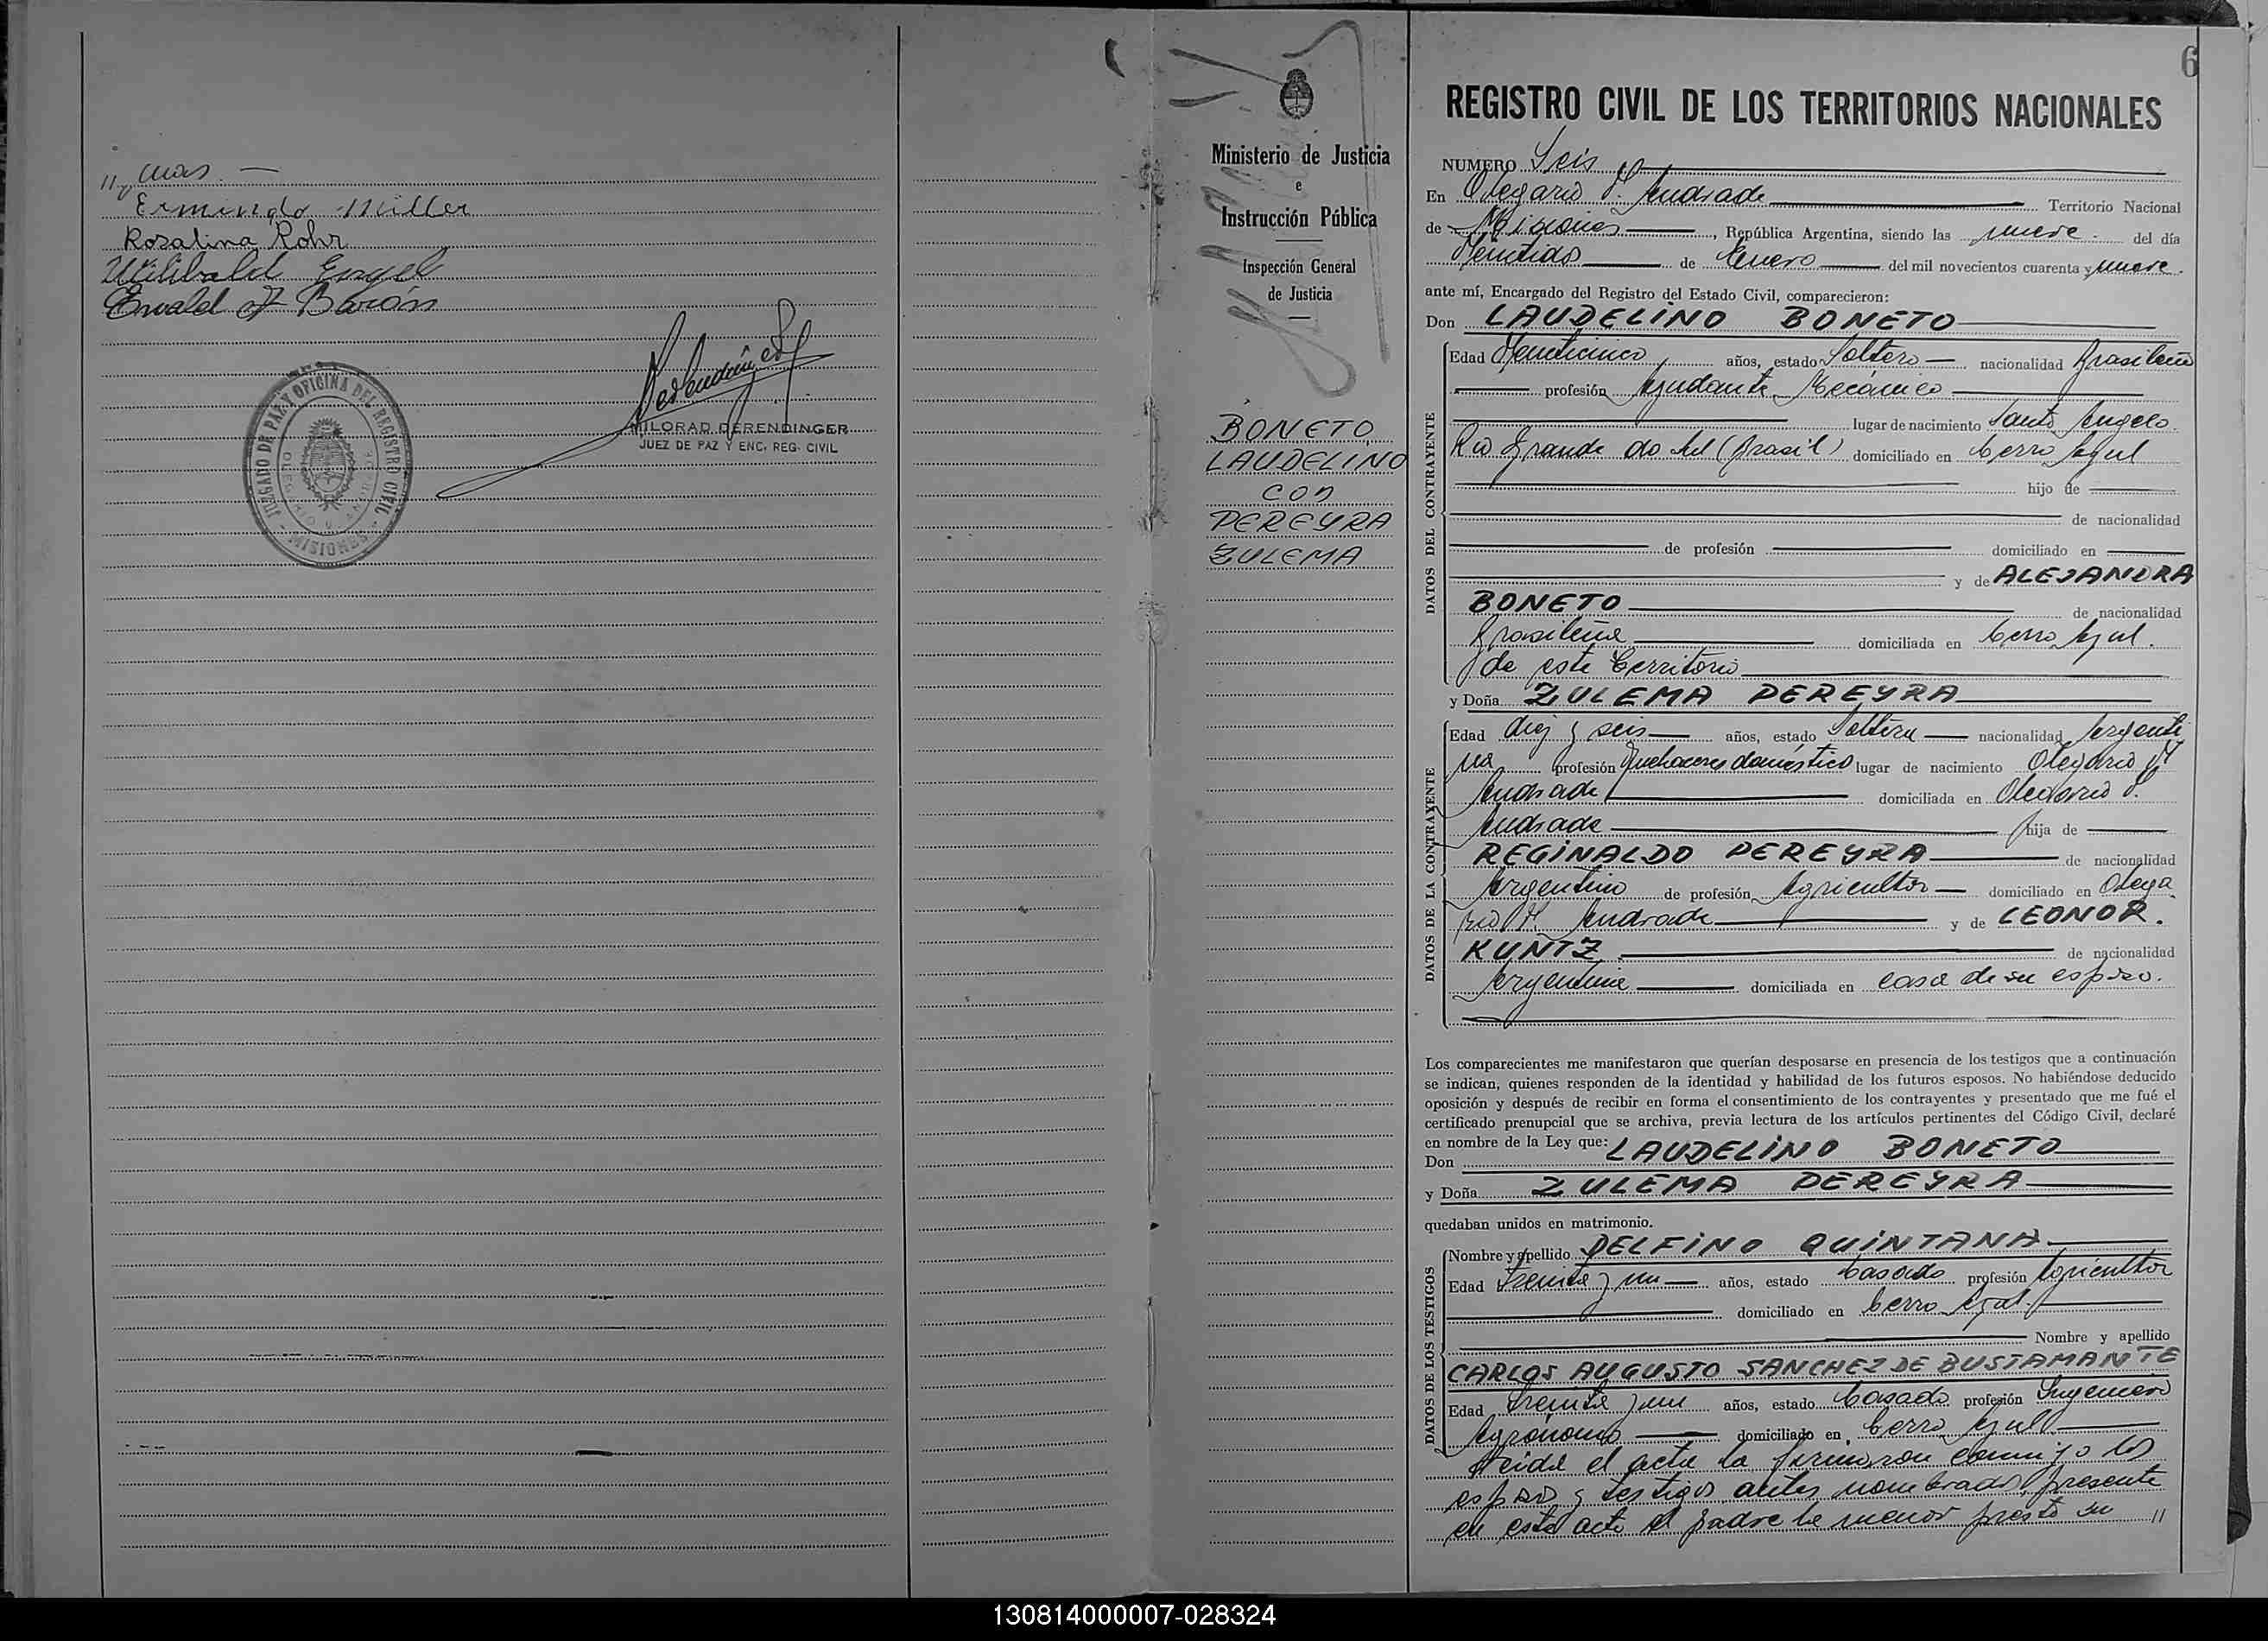 // mas. —
Ermindo Müller
Rosalina Rohr
Willibald Engel
Ewald F Barón
MILORAD DERENDINGER
JUEZ DE PAZ Y ENC. REG. CIVIL
JUZGADO DE PAZ Y OFICINA DEL REGISTRO CIVIL
OLEGARIO V. ANDRADE
MISIONES
Ministerio de Justicia
e
Instrucción Pública
Inspección General
de Justicia
BONETO
LAUDELINO
con
PEREYRA
ZULEMA
6
REGISTRO CIVIL DE LOS TERRITORIOS NACIONALES
NUMERO Seis
En Olegario V. Andrade Territorio Nacional
de Misiones, República Argentina, siendo las nueve del día
Veintidos de Enero del mil novecientos cuarenta y nueve.
ante mí, Encargado del Registro del Estado Civil, comparecieron:
Don LAUDELINO BONETO
DATOS DEL CONTRAYENTE
Edad Veinticinco años, estado Soltero nacionalidad Brasileño
profesión Ayudante Mecánico
lugar de nacimiento Santo Angelo.
Rio Grande do Sul (Brasil) domiciliado en Cerro Azul
hijo de
de nacionalidad
de profesión domiciliado en
y de ALEJANDRA
BONETO de nacionalidad
Brasileña domiciliada en Cerro Azul.
de este Territorio
y Doña ZULEMA PEREYRA
DATOS DE LA CONTRAYENTE
Edad diez y seis años, estado Soltera nacionalidad Argenti
na profesión Quehaceres domésticos lugar de nacimiento Olegario V.
Andrade domiciliada en Olegario V.
Andrade hija de
REGINALDO PEREYRA de nacionalidad
Argentino de profesión Agricultor domiciliado en Olega
rio V. Andrade y de LEONOR.
KUNTZ de nacionalidad
Argentina domiciliada en casa de su esposo.
Los comparecientes me manifestaron que querían desposarse en presencia de los testigos que a continuación
se indican, quienes responden de la identidad y habilidad de los futuros esposos. No habiéndose deducido
oposición y después de recibir en forma el consentimiento de los contrayentes y presentado que me fué el
certificado prenupcial que se archiva, previa lectura de los artículos pertinentes del Código Civil, declaré
en nombre de la Ley que:
Don LAUDELINO BONETO
y Doña ZULEMA PEREYRA
quedaban unidos en matrimonio.
DATOS DE LOS TESTIGOS
Nombre y apellido DELFINO QUINTANA
Edad Treinta y un años, estado Casado profesión Agricultor
domiciliado en Cerro Azul.
Nombre y apellido
CARLOS AUGUSTO SANCHEZ DE BUSTAMANTE
Edad Treinta y un años, estado Casado profesión Ingeniero
Agrónomo domiciliado en Cerro Azul
Leida el acta la firmaron conmigo los
esposos y testigos antes nombrados, presente
en este acto el padre la menor prestó su //
130814000007-028324